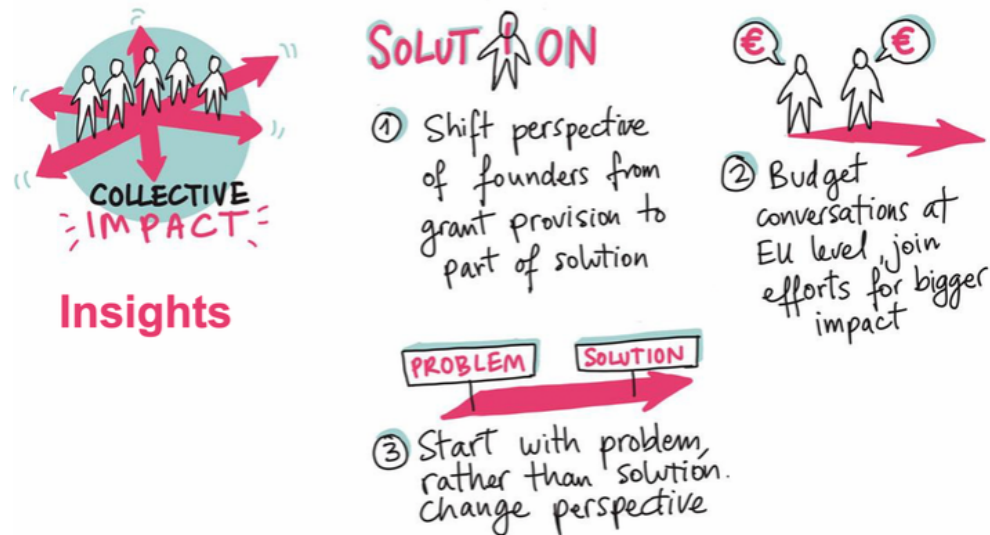 COLLECTIVE
IMPACT
Insights
SOLUTION
① Shift perspective
of founders from
grant provision to
part of solution
€
€
② Budget
conversations at
EU level, join
efforts for bigger
impact
PROBLEM
SOLUTION
③ Start with problem,
rather than solution.
Change perspective